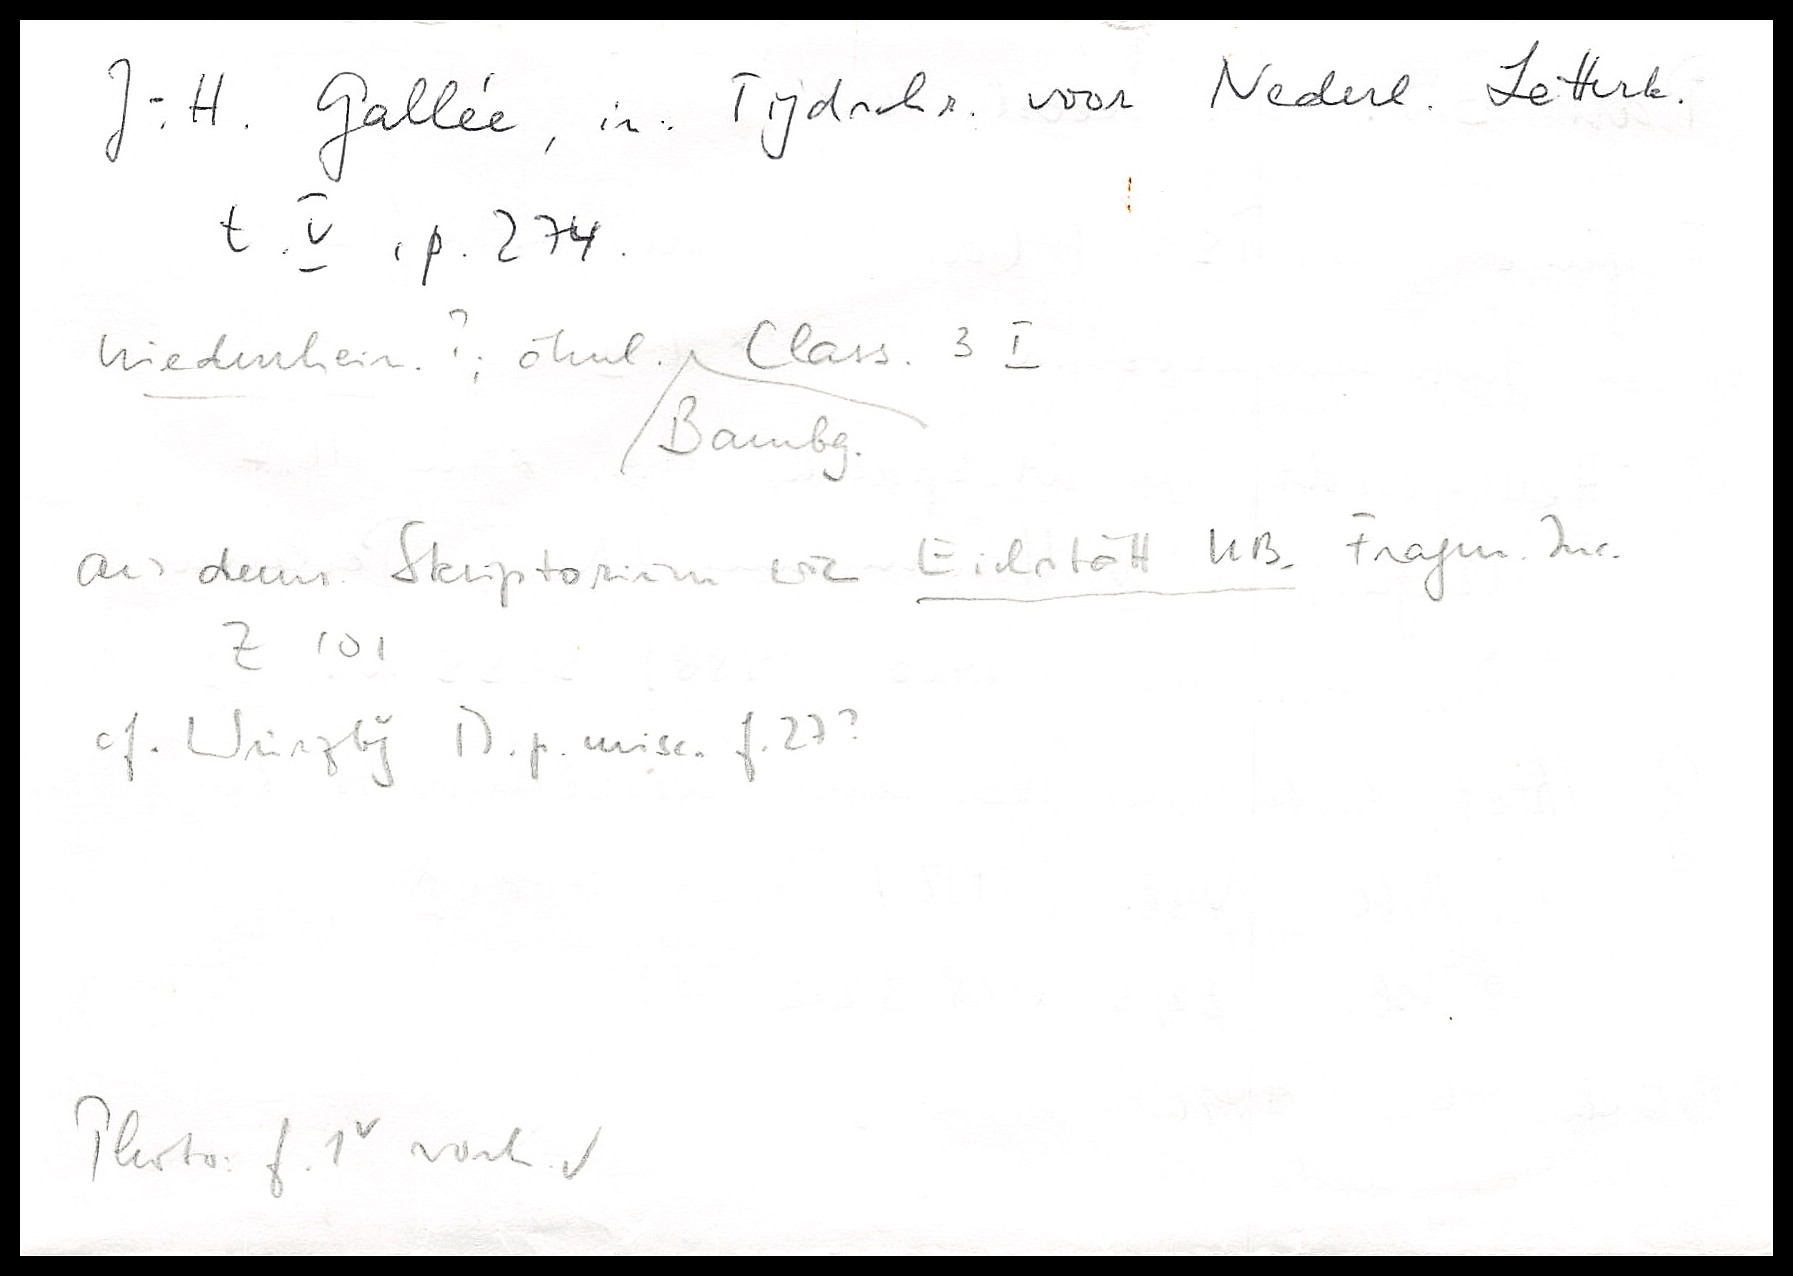 J.-H. Gallée, in: Tijdschr. voor Nederl. Letterk.
t. V, p. 274.
Niederrhein.?; ähnl. Class. 3 I
Bambg.
aus dems. Skriptorium wie Eichstätt UB. Fragm. Inc.
Z 101
cf. Würzbg M. p. misc. f. 27?
Photo: f. 1v vorh. ✓